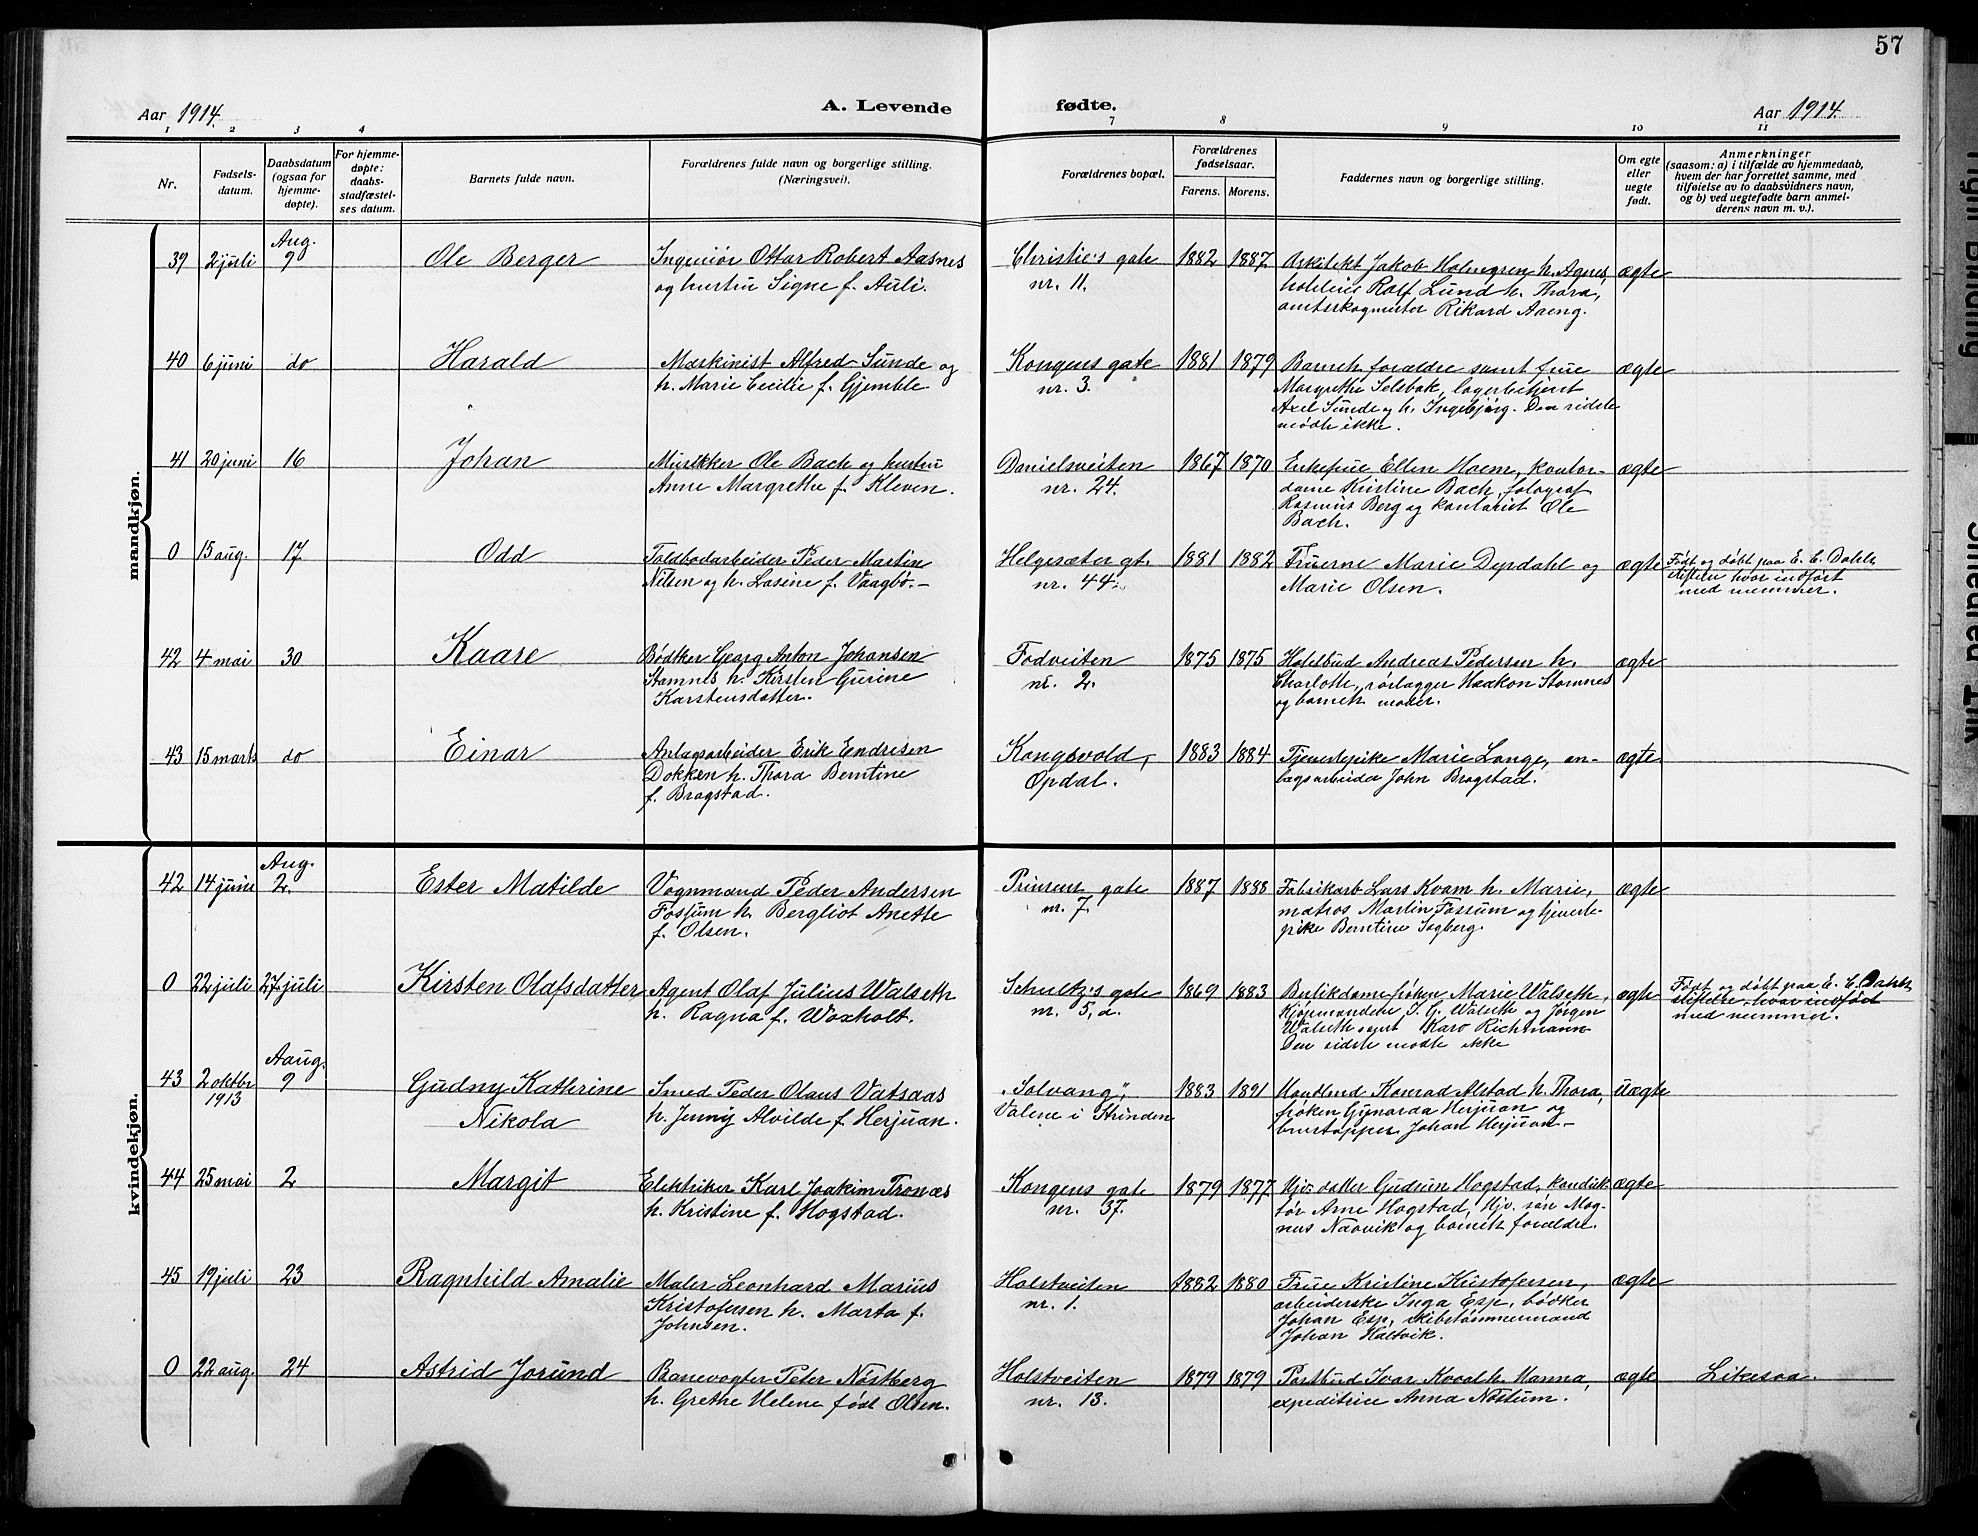 57
Aar 1914. A. Levende fødte. Aar 1914.
1 2 3 4 7 8 9 10 11
Nr.
Fødsels-
datum.
Daabsdatum
(ogsaa for
hjemme-
døpte).
For hjemme-
døpte:
daabs-
stadfæstel-
ses datum.
Barnets fulde navn.
Forældrenes fulde navn og borgerlige stilling.
(Næringsvei).
Forældrenes bopæl.
Forældrenes
fødselsaar.
Farens. Morens.
Faddernes navn og borgerlige stilling.
Om egte
eller
uegte
født.
Anmerkninger
(saasom: a) i tilfælde av hjemmedaab,
hvem der har forrettet samme, med
tilføielse av to daabsvidners navn,
og b) ved uegtefødte barn anmel-
derens navn m. v.).
mandkjøn.
39 2 juli Aug. 9 Ole Berger
Ingeniør Ottar Robert Aasnes
og hustru Signe f. Auli.
Christie's gate
nr. 11.
1882 1887
Arkitekt Jakob Holmgren h. Agnes,
Ralf Lund h. Thora,
Rikard Aaeng.
ægte
40 6 juni do Harald
Maskinist Alfred Sunde og
h. Marie Cecilie f. Gjemble
Kongens gate
nr. 3.
1881 1879
Barnets forældre samt frue
Margrethe Selsbak, lagerbetjent
Axel Sunde og h. Ingebjørg. Den sidste
mødte ikke.
ægte
41 20 juni 16 Johan
Musikker Ole Bach og hustru
Anne Margrethe f. Kleven.
Danielsveiten
nr. 24.
1867 1870
Enkefrue Ellen Hoem, kontor-
dame Kristine Bach, fotograf
Rasmus Berg og kontorist Ole
Bach.
ægte
0 15 aug. 17 Odd
Toldbodarbeider Peder Martin
Nilsen og h. Lasine f. Vaagbø.
Helgesæter gt.
nr. 44.
1881 1882
Fruerne Marie Dyrdahl og
Marie Olsen.
ægte
Født og døbt paa E. C. Dahls
stiftelse hvor indført
med nummer.
42 4 mai 30 Kaare
Bødker Georg Anton Johansen
Stamnes h. Kirsten Gurine
Karstensdatter.
Fodveiten
nr. 2.
1875 1875
Hotelbud Andreas Pedersen h.
Charlotte, rørlægger Haakon Stamnes
og barnets moder.
ægte
43 15 marts do Einar
Anlagsarbeider Erik Endresen
Dokken h. Thora Berntine
f. Bragstad.
Kongsvold,
Opdal.
1883 1884
Tjenestepike Marie Lange, an-
lagsarbeider John Bragstad.
ægte
kvindekjøn.
42 14 juni Aug. 2. Ester Matilde
Vognmand Peder Andersen
Fossum h. Bergliot Anette
f. Olsen.
Prinsens gate
nr. 7.
1887 1888
Fabrikarb Lars Kvam h. Marie,
matros Martin Fossum og tjeneste-
pike Berntine Sagberg.
ægte
0 22 juli 27 juli Kirsten Olafsdatter
Agent Olaf Julius Walseth
h. Ragna f. Woxholt.
Schultz's gate
nr. 5, a.
1869 1883
Butikdame frøken Marie Walseth,
kjøpmændene J. G. Walseth og Jørgen
Walseth samt Karo Richmann
Den sidste mødte ikke
ægte
Født og døbt paa E. C. Dahls
stiftelse, hvor indført
med nummer.
43 2 oktbr 1913 Aaug. 9 Gudny Kathrine
Nikola
Smed Peder Olaus Vatsaas
h. Jenny Alvilde f. Herjuan.
"Solvang",
Valene i Strinden
1883 1891
Handlend. Konrad Alstad h. Thora,
frøken Gunarda Herjuan og
Johan Herjuan
uægte
44 25 mai 2 Margit
Elektriker Karl Joakim Tronæs
h. Kristine f. Hogstad.
Kongens gate
nr. 37.
1879 1877
Hjv. datter Gudrun Hogstad, konduk-
tør Arne Hogstad, Hjv. søn Mag-
nus Naavik og barnets forældre.
ægte
45 19 juli 23 Ragnhild Amalie
Maler Leonhard Marius
Kristofersen h. Marta f.
Johnsen.
Holstveiten
nr. 1.
1882 1880
Frue Kristine Kristofersen,
arbeiderske Inga Esp, bødker
Johan Esp, skibstømmermand
Johan Haltvik.
ægte
0 22 aug. 24 Astrid Jorund
Banevogter Peter Nøstberg
h. Grethe Helene født Olsen.
Holstveiten
nr. 13.
1879 1879
Postbud Ivar Kvaal h. Hanna,
expeditrice Anna Nossum.
ægte
Likesaa.